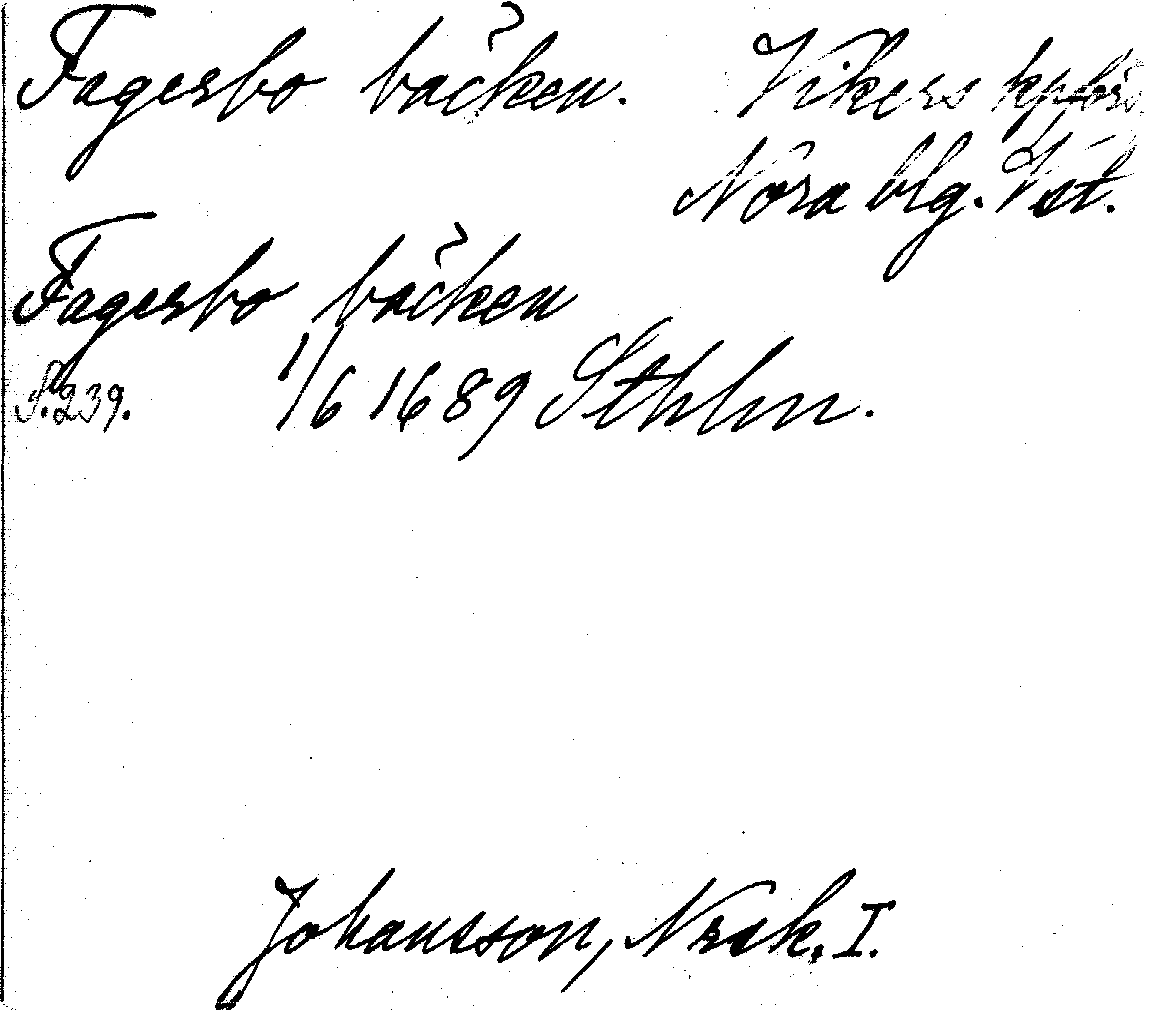 Fagersbo bäcken. Vikers kpförs.
Nora blg. Vst.
Fagersbo bäcken
S. 239. 1/6 1689 Sthlm.
Johansson, Nrsk. I.